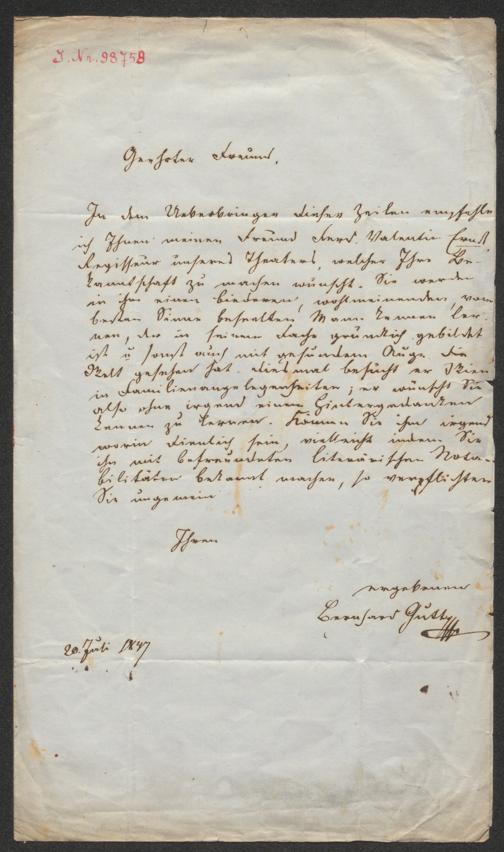 J. Nr. 98758
Geehrter Freund,
In dem Ueberbringer dieser Zeilen empfehle
ich Ihnen meinen Freund Ferd. Valentin Ernst,
Regisseur unseres Theaters, welcher Ihre Be-
kantschaft zu machen wünscht. Sie werden
in ihm einen biederen, wohlmeinenden, vom
besten Sinne beseelten Mann kennen ler-
nen, der in seinem Fache gründlich gebildet
ist u sonst auch mit gesundem Auge die
Welt gesehen hat. Diesmal besucht er Wien
in Familienangelegenheiten; er wünscht Sie
also ohne irgend einen Hintergedanken
kennen zu lernen. Können Sie ihm irgend
worin dienlich sein, vielleicht indem Sie
ihn mit befreundeten literärischen Nota-
bilitäten bekannt machen, so verpflichten
Sie ungemein
Ihren
ergebenen
Bernhard Gutt
20. Juli 1847